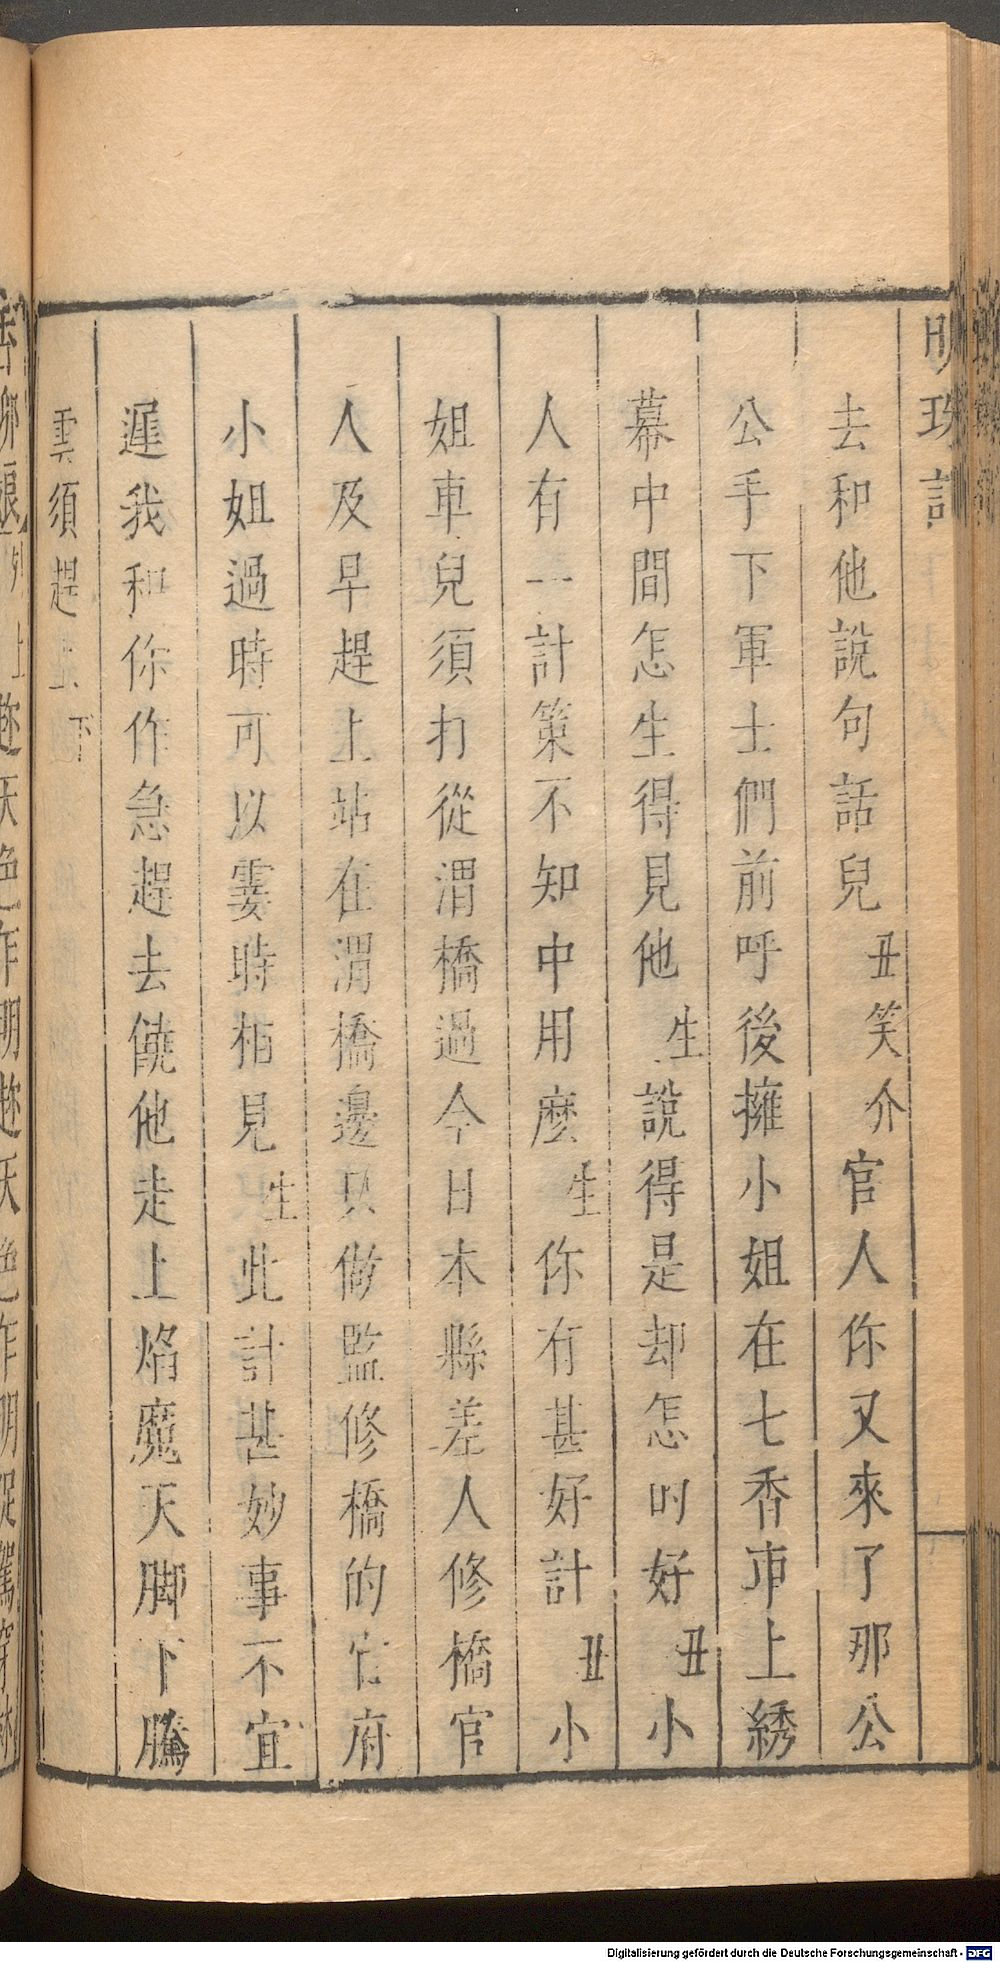 明珠記
去和他說句話兒丑笑介官人你又來了那公
公手下軍士們前呼後擁小姐在七香車上綉
幕中間怎生得見他生說得是却怎的好丑小
人有一計策不知中用麼生你有甚好計丑小
姐車兒須打從渭橋過今日本縣差人修橋官
人及早趕上站在渭橋邊只做監修橋的官府
小姐過時可以霎時相見生此計甚妙事不宜
遲我和你作急趕去饒他走上焰魔天脚下騰
雲須趕上下
Digitalisierung gefördert durch die Deutsche Forschungsgemeinschaft - DFG